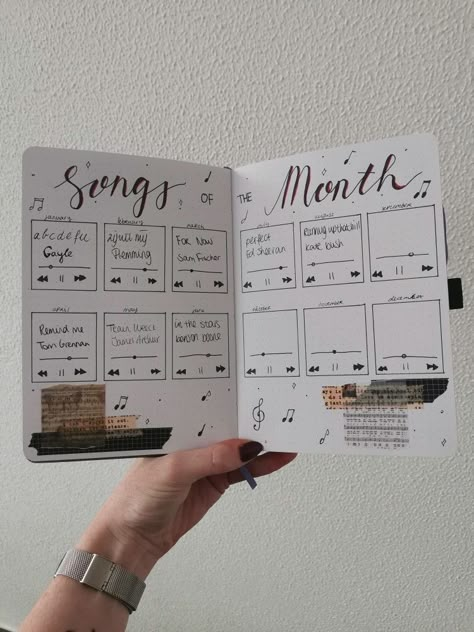 Songs OF THE Month
january
february
march
abcdefu
Gayle
zij uit mij
Flemming
For Now
Sam Fischer
april
may
june
Remind me
Tom Grennan
Train Wreck
James Arthur
in the stars
benson boone
july
august
september
perfect
Ed Sheeran
Running up that hill
kate bush
october
november
december